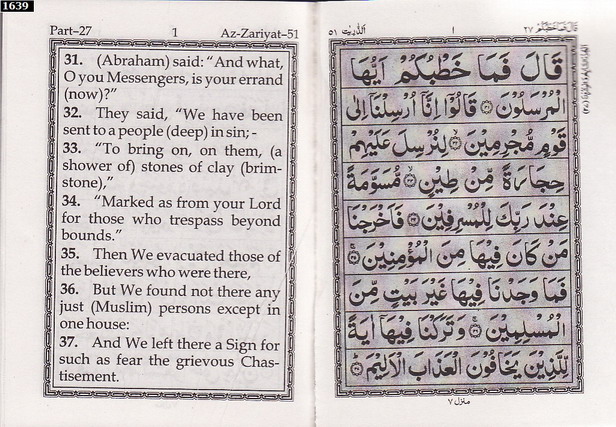 1639
Part–27 1 Az-Zariyat–51
31. (Abraham) said: “And what,
O you Messengers, is your errand
(now)?”
32. They said, “We have been
sent to a people (deep) in sin; -
33. “To bring on, on them, (a
shower of) stones of clay (brim-
stone),”
34. “Marked as from your Lord
for those who trespass beyond
bounds.”
35. Then We evacuated those of
the believers who were there,
36. But We found not there any
just (Muslim) persons except in
one house:
37. And We left there a Sign for
such as fear the grievous Chas-
tisement.
قال فما خطبکم ۲۷ ۱ الذّٰریٰت ۵۱
قَالَ فَمَا خَطْبُكُمْ اَيُّهَا
الْمُرْسَلُوْنَ ۳۱ قَالُوْۤا اِنَّاۤ اُرْسِلْنَاۤ اِلٰى
قَوْمٍ مُّجْرِمِيْنَ ۳۲ لِنُرْسِلَ عَلَيْهِمْ
حِجَارَةً مِّنْ طِيْنٍ ۳۳ مُّسَوَّمَةً
عِنْدَ رَبِّكَ لِلْمُسْرِفِيْنَ ۳۴ فَاَخْرَجْنَا
مَنْ كَانَ فِيْهَا مِنَ الْمُؤْمِنِيْنَ ۳۵
فَمَا وَجَدْنَا فِيْهَا غَيْرَ بَيْتٍ مِّنَ
الْمُسْلِمِيْنَ ۳۶ وَتَرَكْنَا فِيْهَاۤ اٰيَةً
لِّلَّذِيْنَ يَخَافُوْنَ الْعَذَابَ الْاَلِيْمَ ۳۷
منزل ۷